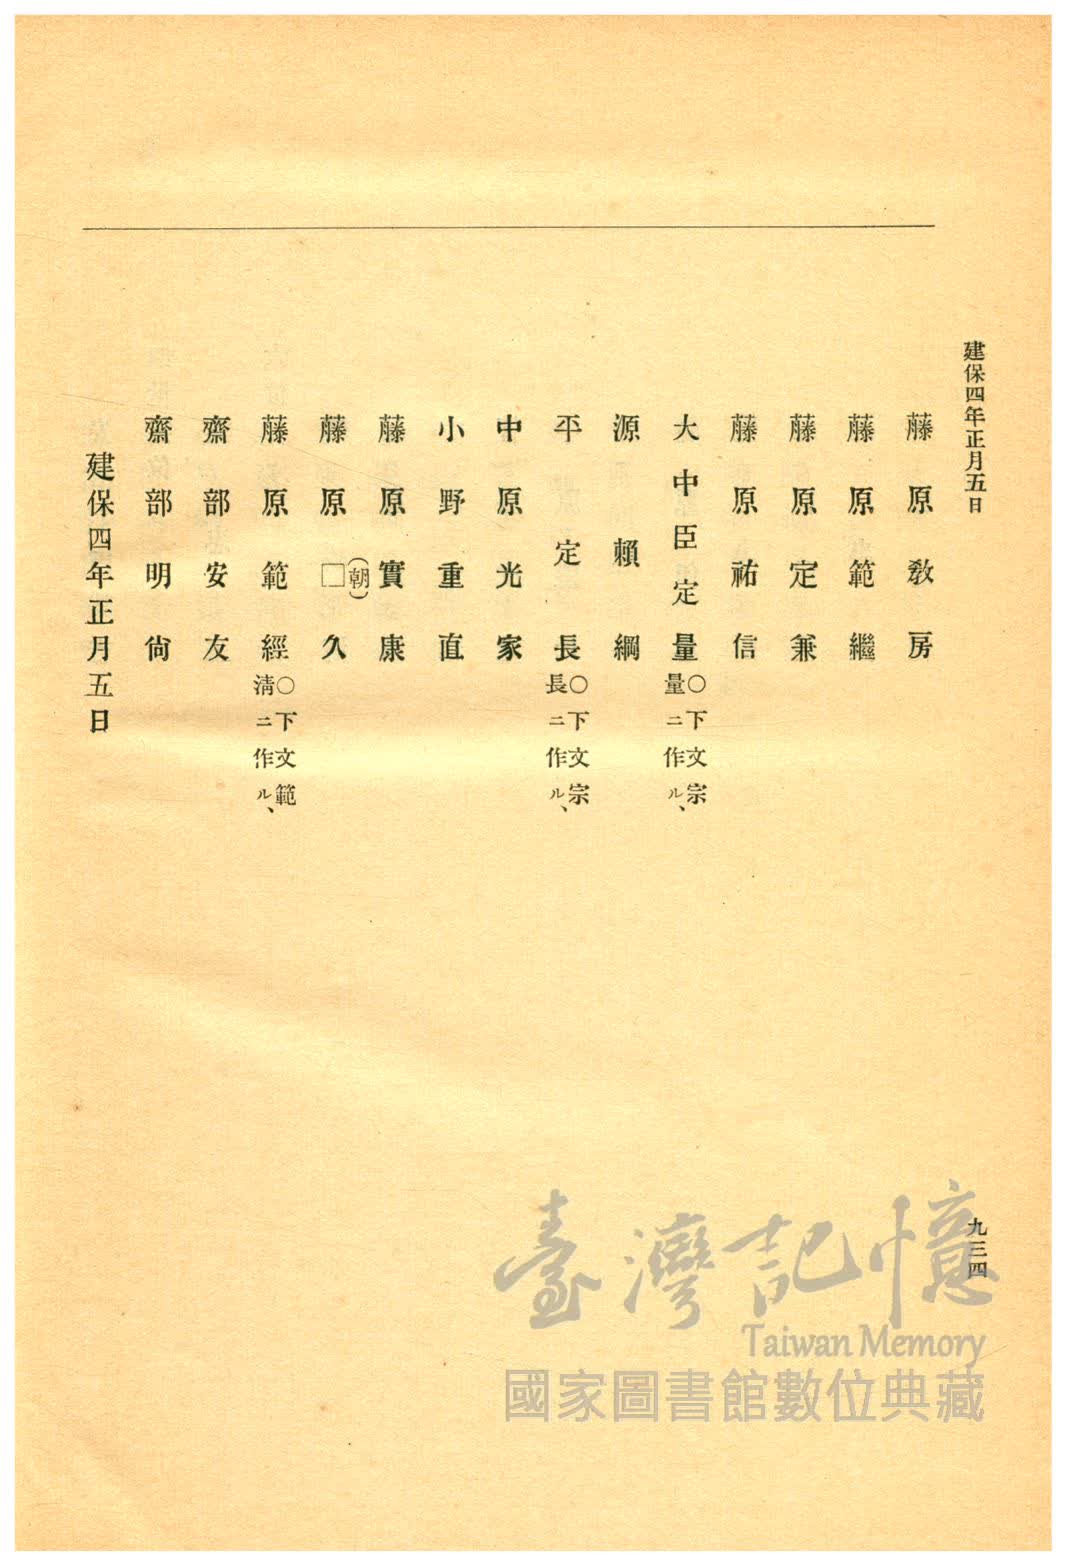 建保四年正月五日
藤原敎房
藤原範繼
藤原定兼
藤原祐信
大中臣定量○下文宗量ニ作ル、
源賴綱
平定長○下文宗長ニ作ル、
中原光家
小野重直
藤原實康
藤原□(朝)久
藤原範經○下文範淸ニ作ル、
齋部安友
齋部明尙
建保四年正月五日
九三四
臺灣記憶
Taiwan Memory
國家圖書館數位典藏